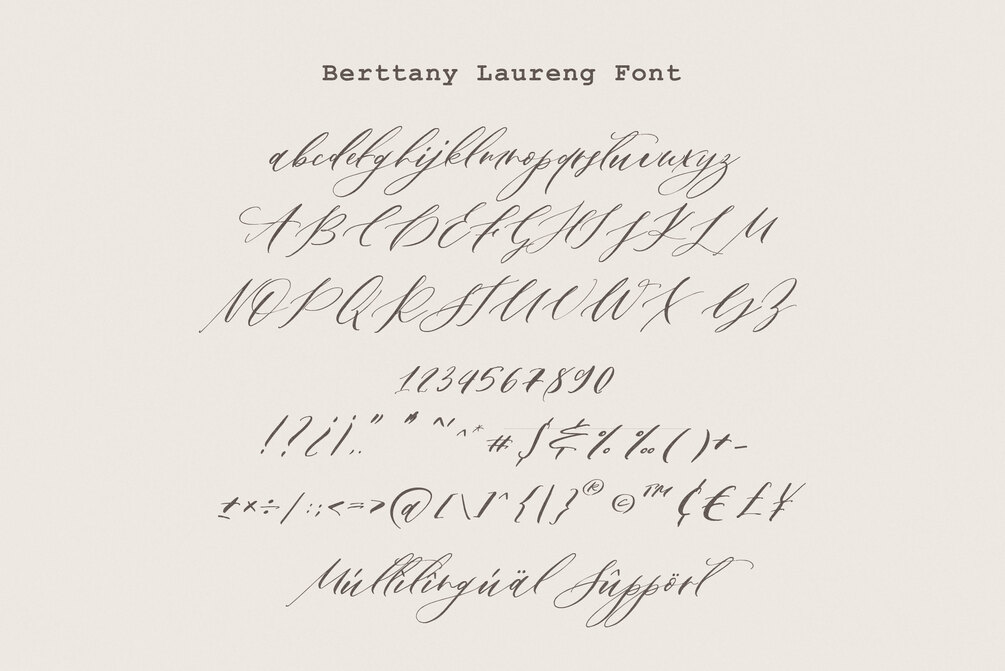 Berttany Laureng Font
abcdefghijklmnopqrstuvwxyz
ABCDEFGHIJKLM
NOPQRSTUVWXYZ
1234567890
!?¿¡.," " ~ ^*#$&%‰()+-
±×÷/:;<=>@[\]^{|}®©™¢€£¥
Múltîlîngúäl Sûppört